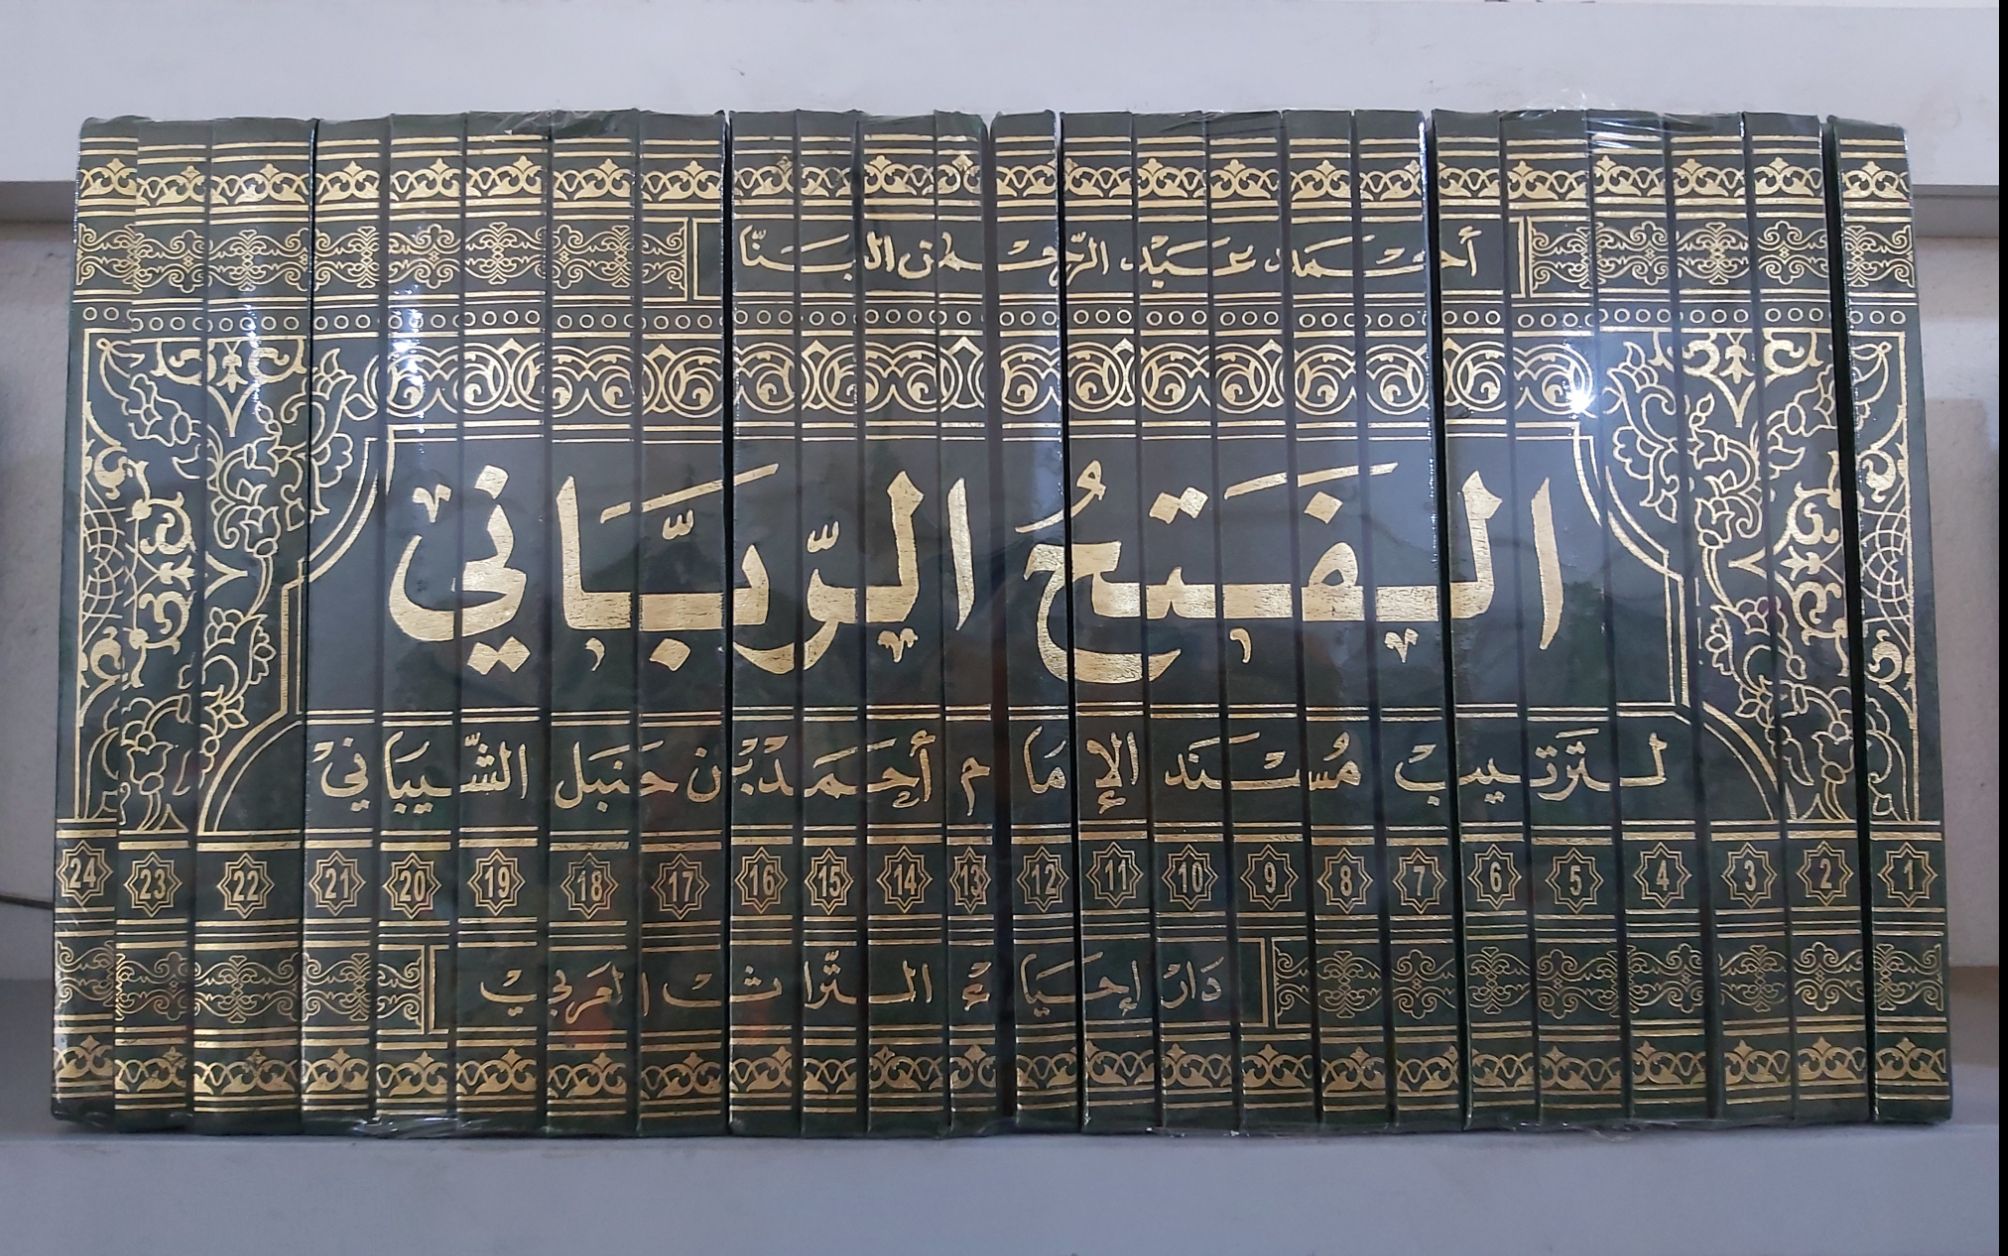 أحمد عبد الرّحمن البنّا
الفتحُ الرّبَّاني
لترتيب مُسْنَد الإمَام أحمَد بْن حَنبَل الشّيبَاني
24 23 22 21 20 19 18 17 16 15 14 13 12 11 10 9 8 7 6 5 4 3 2 1
دَار إحيَاء التّراث العَربي